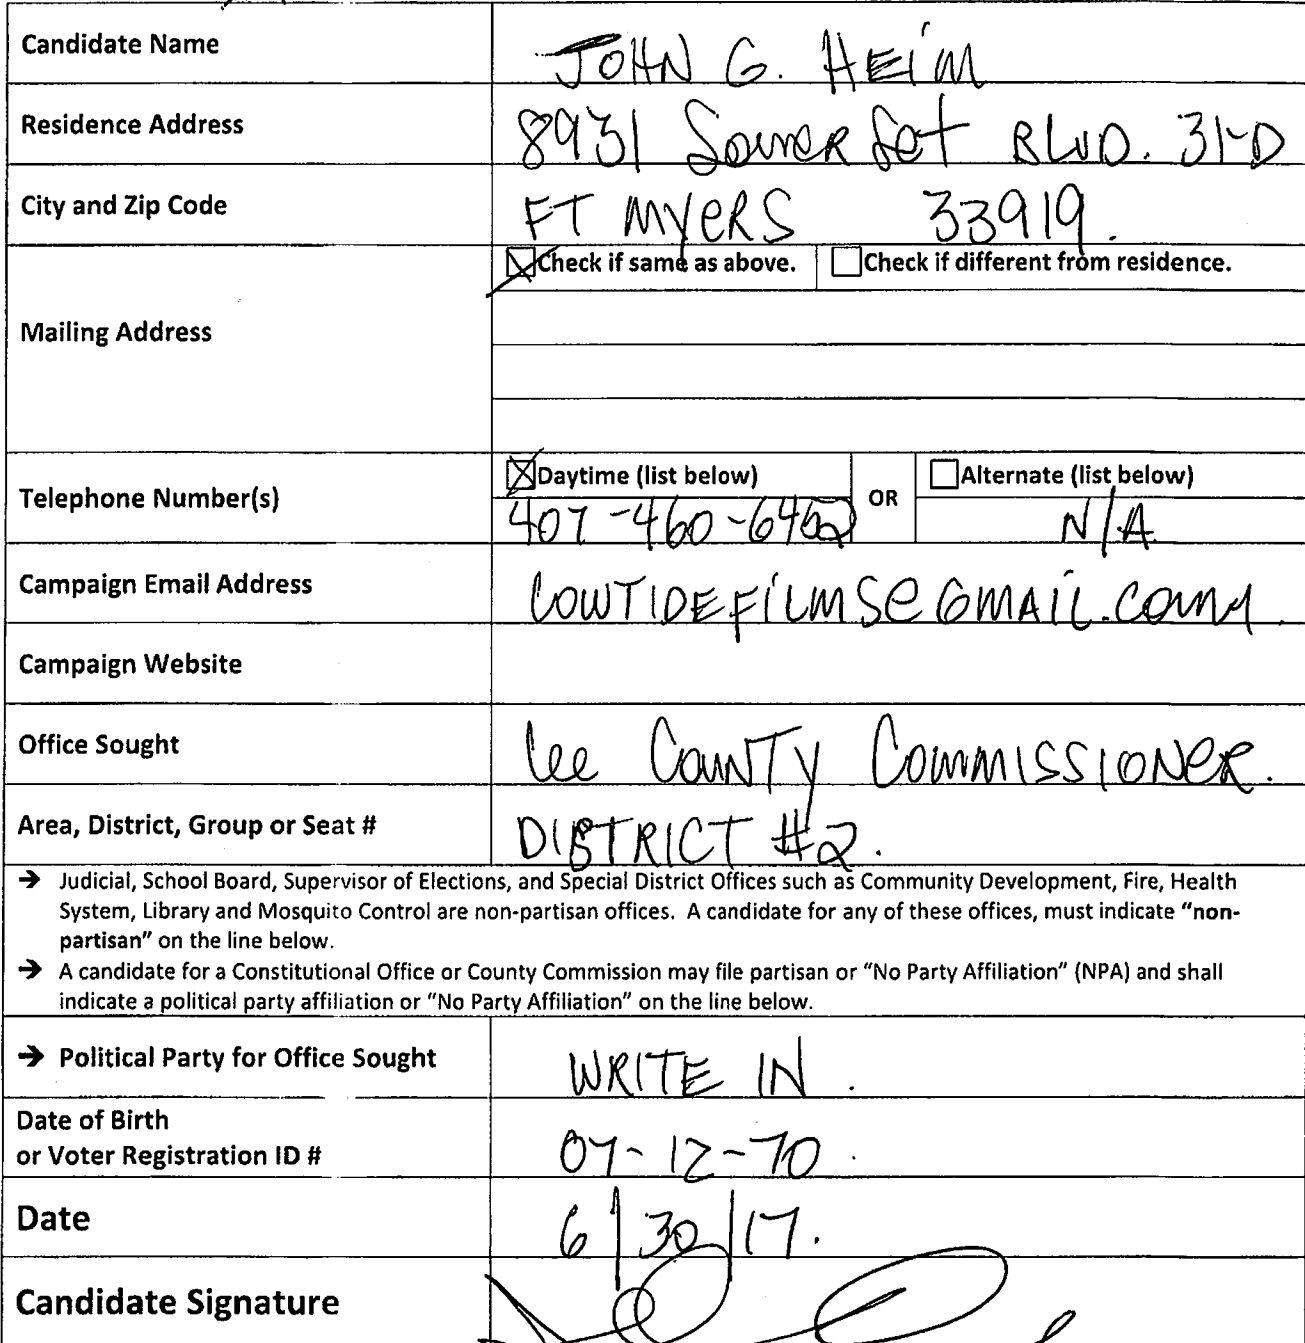 Candidate Name JOHN G. HEIM
Residence Address 8931 Somerset BLVD. 31-D
City and Zip Code FT MYERS 33919.
Check if same as above. Check if different from residence.
Mailing Address
Daytime (list below) OR Alternate (list below)
Telephone Number(s) 407-460-6452 N/A
Campaign Email Address LOWTIDEFILMS@GMAIL.COM.
Campaign Website
Office Sought Lee County Commissioner.
Area, District, Group or Seat # DISTRICT #2.
→ Judicial, School Board, Supervisor of Elections, and Special District Offices such as Community Development, Fire, Health
System, Library and Mosquito Control are non-partisan offices. A candidate for any of these offices, must indicate "non-
partisan" on the line below.
→ A candidate for a Constitutional Office or County Commission may file partisan or "No Party Affiliation" (NPA) and shall
indicate a political party affiliation or "No Party Affiliation" on the line below.
→ Political Party for Office Sought WRITE IN.
Date of Birth
or Voter Registration ID # 07-12-70
Date 6/30/17.
Candidate Signature